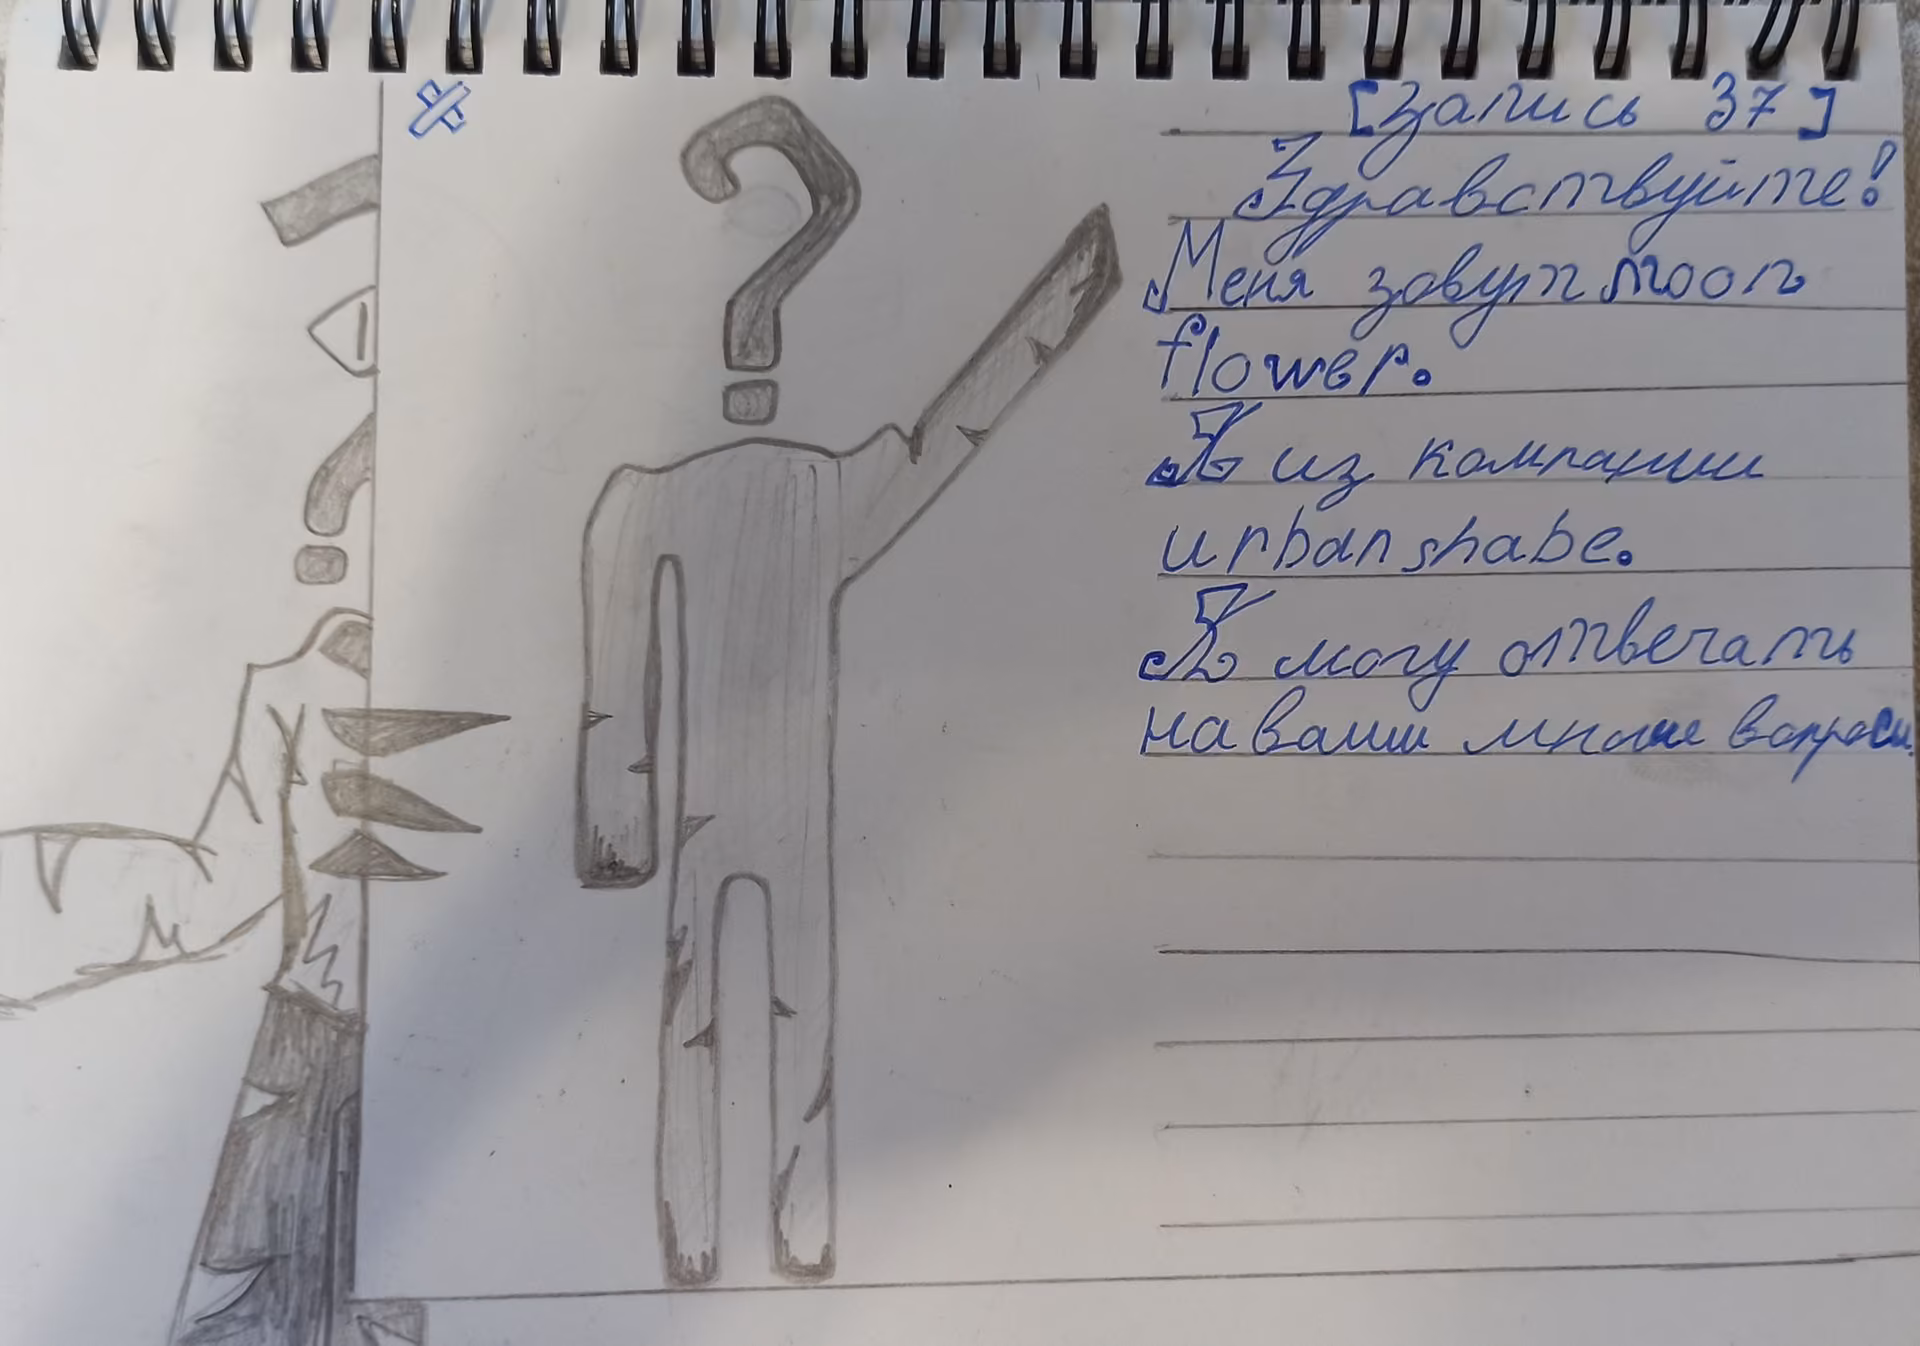 [Запись 37]
Здравствуйте!
Меня зовут moon
flower.
Я из компании
urban shabe.
Я могу отвечать
на ваши многие вопросы.